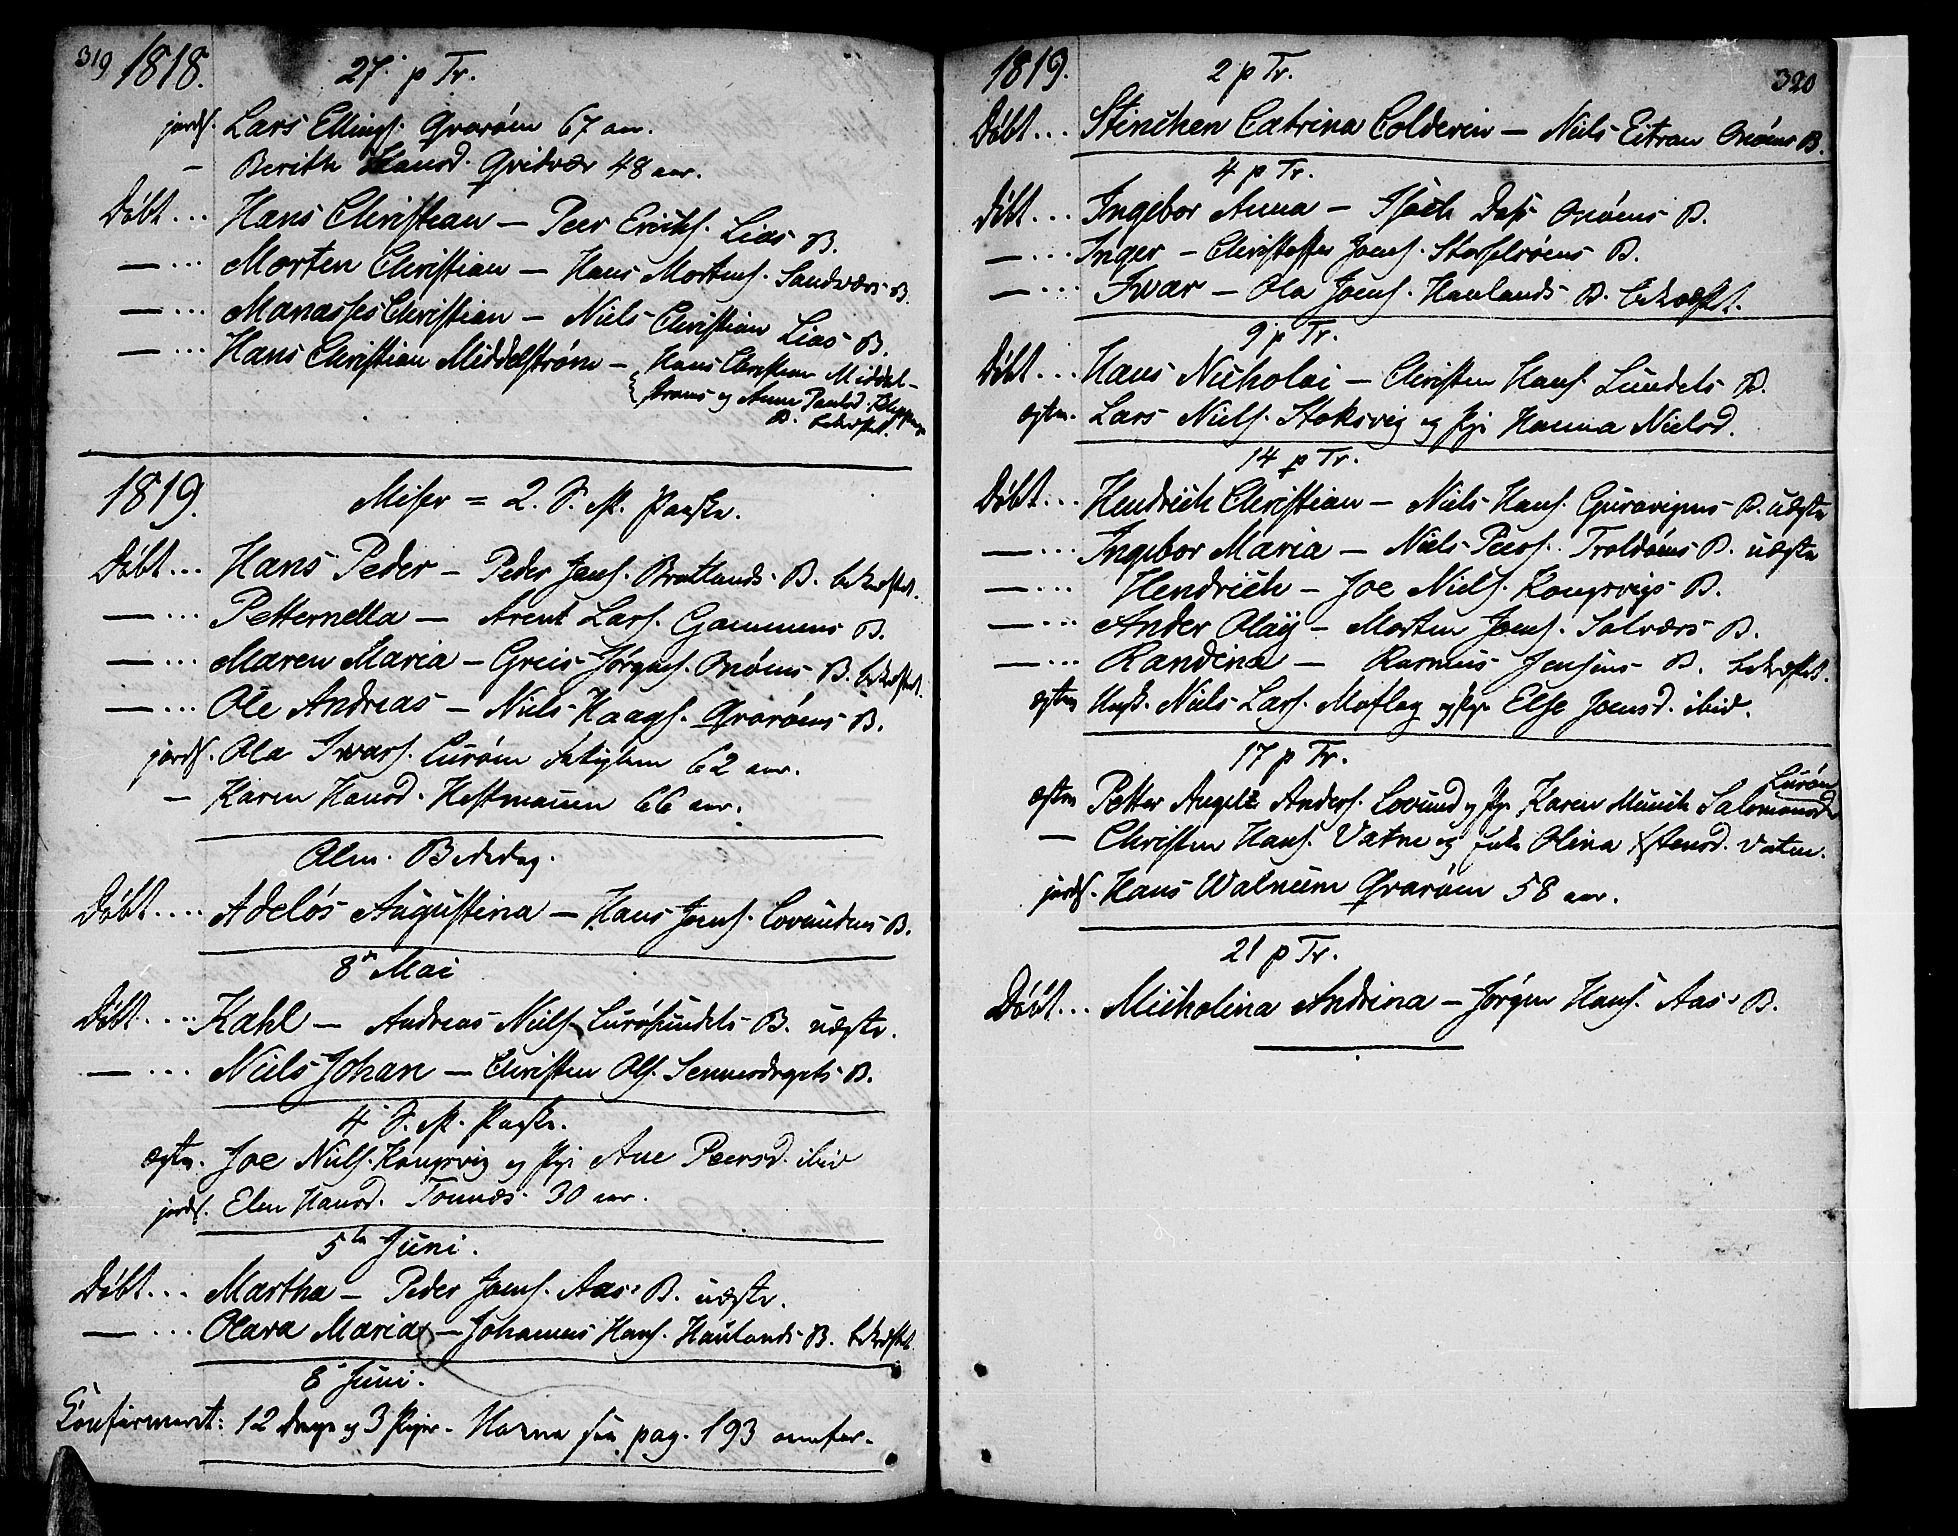 319 1818. 27. p Tr.
jordf. Lars Ellingf. Qvarøen 67 aar.
— Berith Hansd. Qvidvær 48 aar.
Døbt ... Hans Christian — Peer Erichf. Lias B.
— ... Morten Christian — Hans Mortensf. Sandværs B.
— ... Manasses Christian — Niels Christian Lias B.
— ... Hans Christian Middelstrøm — Hans Christian Middel-
strøms og Anne Paulsd.
B. bekræftet.
1819. Miser = 2. S. p. Paaske.
Døbt ... Hans Peder — Peder Jensf. Bratlands B. bekræftet.
— ... Petternella — Arent Larsf. Gjammens B.
— ... Maren Maria — Greis Jørgensf. Onøens B. bekræftet.
— ... Ole Andreas — Niels Haagsf. Qvarøens B.
jordf. Ola Ivarsf. Lurøen fattiglem 62 aar.
— Karen Hansd. Hestmanen 66 aar.
Alm. Bededag.
Døbt .... Adelós Augustina — Hans Jensf. Lovundens B.
8de Mai
Døbt .... Kahl — Andreas Nielsf. Lurøsundets B. uægte.
— ... Niels Johan — Christen Olsf. Sennesdragets B.
4. S. p. Paaske.
ægtev. Joe Nielsf. Kongsvig og Pige Ane Peersd. ibid
jordf. Elen Hansd. Tonnæs 30 aar.
5te Juni.
Døbt ... Martha — Peder Jensf. Aas B. uægte.
— ... Olava Maria — Johannes Hansf. Haulands B. bekræftet
8 Juni.
Confirmeret: 12 Drenge og 3 Piger. Navne see pag. 193 annfør.
1819. 2 p Tr. 320
Døbt ... Stinchen Catrina Coldevin — Niels Eitran Onøens B.
4 p Tr.
Døbt ... Ingebor Anna — Isach Dass Onøens B.
— ... Inger — Christoffer Jonsf. Storselsøens B.
— ... Ivar — Ola Jonsf. Haulands B. bekræftet.
9 p Tr.
Døbt ... Hans Nicholai — Christen Hansf. Sundets B.
ægtev. Lars Nielsf. Stoksvig og Pige Hanna Nielsd.
14 p Tr.
Døbt ... Hendrich Christian — Niels Hansf. B. uægte
— ... Ingebor Maria — Niels Peersf. Troldøens B. uægte
— ... Hendrich — Joe Nielsf. Kongsvigs B.
— ... Ander Olay — Morten Jonsf. Solværs B.
— ... Randina — Rasmus Jensens B. bekræftet.
ægtev. Ungk. Niels Larsf. Moflag og Pige Else Jonsd. ibid.
17 p Tr.
ægtev. Petter Angell Andersf. Lovund og Pige Karen Munch Salomonsd. Lurøen
— Christen Hansf. Vatne og Enke Olina Stensd. Vatne.
jordf. Hans Walnum Qvarøen 58 aar.
21 p Tr.
Døbt ... Micholina Andrina — Jørgen Hansf. Aas B.